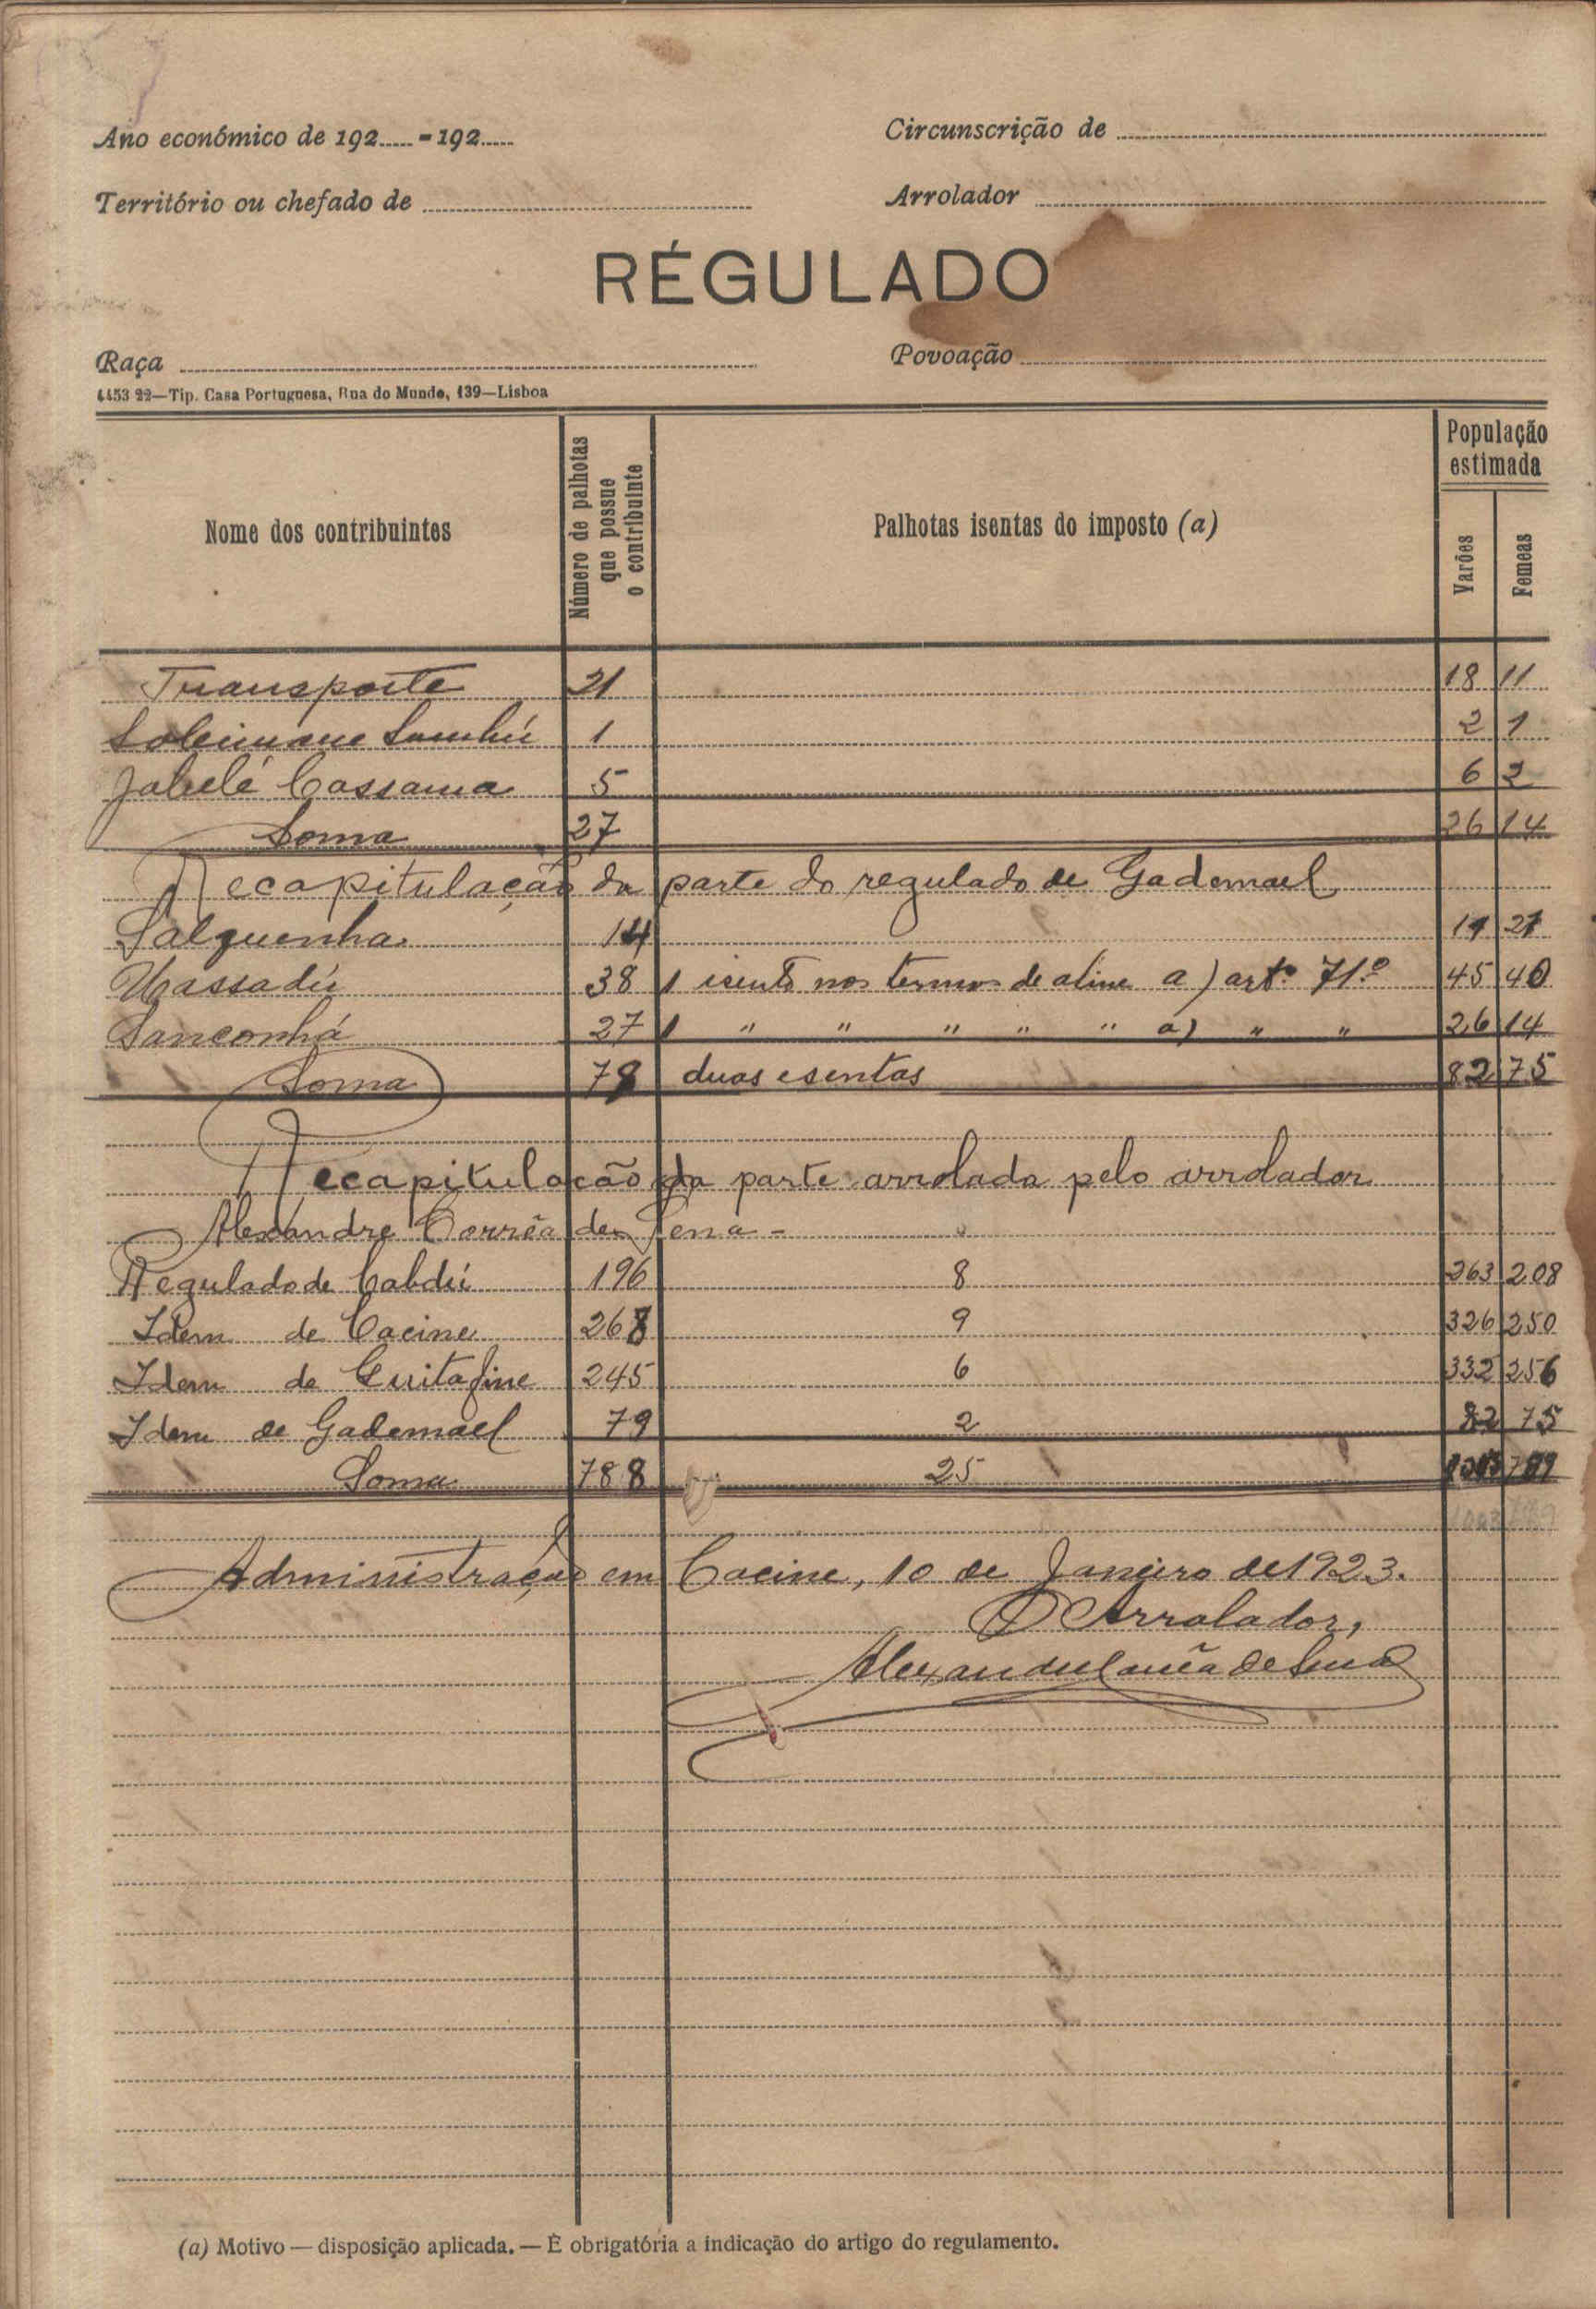 Ano económico de 192.....-192..... Circunscrição de
Território ou chefado de Arrolador
RÉGULADO
Raça Povoação
4453 22—Tip. Casa Portuguesa, Rua do Mundo, 139—Lisboa
Nome dos contribuintes Número de palhotas que possue o contribuinte Palhotas isentas do imposto (a) População estimada Varões Femeas
Transporte 21 18 11
Soleimane Sambú 1 2 1
Jabelé Cassama 5 6 2
Soma 27 26 14
Recapitulação da parte do regulado de Gademael
Salquenha 14 11 21
Massadú 38 1 isento nos termos de aline a) artº 71º 45 40
Sanconhá 27 1 " " " " " a) " " 26 14
Soma 79 duas esentas 82 75
Recapitulação da parte arrolada pelo arrolador
Alexandre Corrêa de Sena -
Regulado de Cabdú 196 8 263 208
Idem de Cacine 268 9 326 250
Idem de Guitafine 245 6 332 256
Idem de Gademael 79 2 82 75
Soma 788 25 1003 789
1003 789
Administração em Cacine, 10 de Janeiro de 1923.
O Arrolador,
Alexandre Corrêa de Sena
(a) Motivo — disposição aplicada. — É obrigatória a indicação do artigo do regulamento.